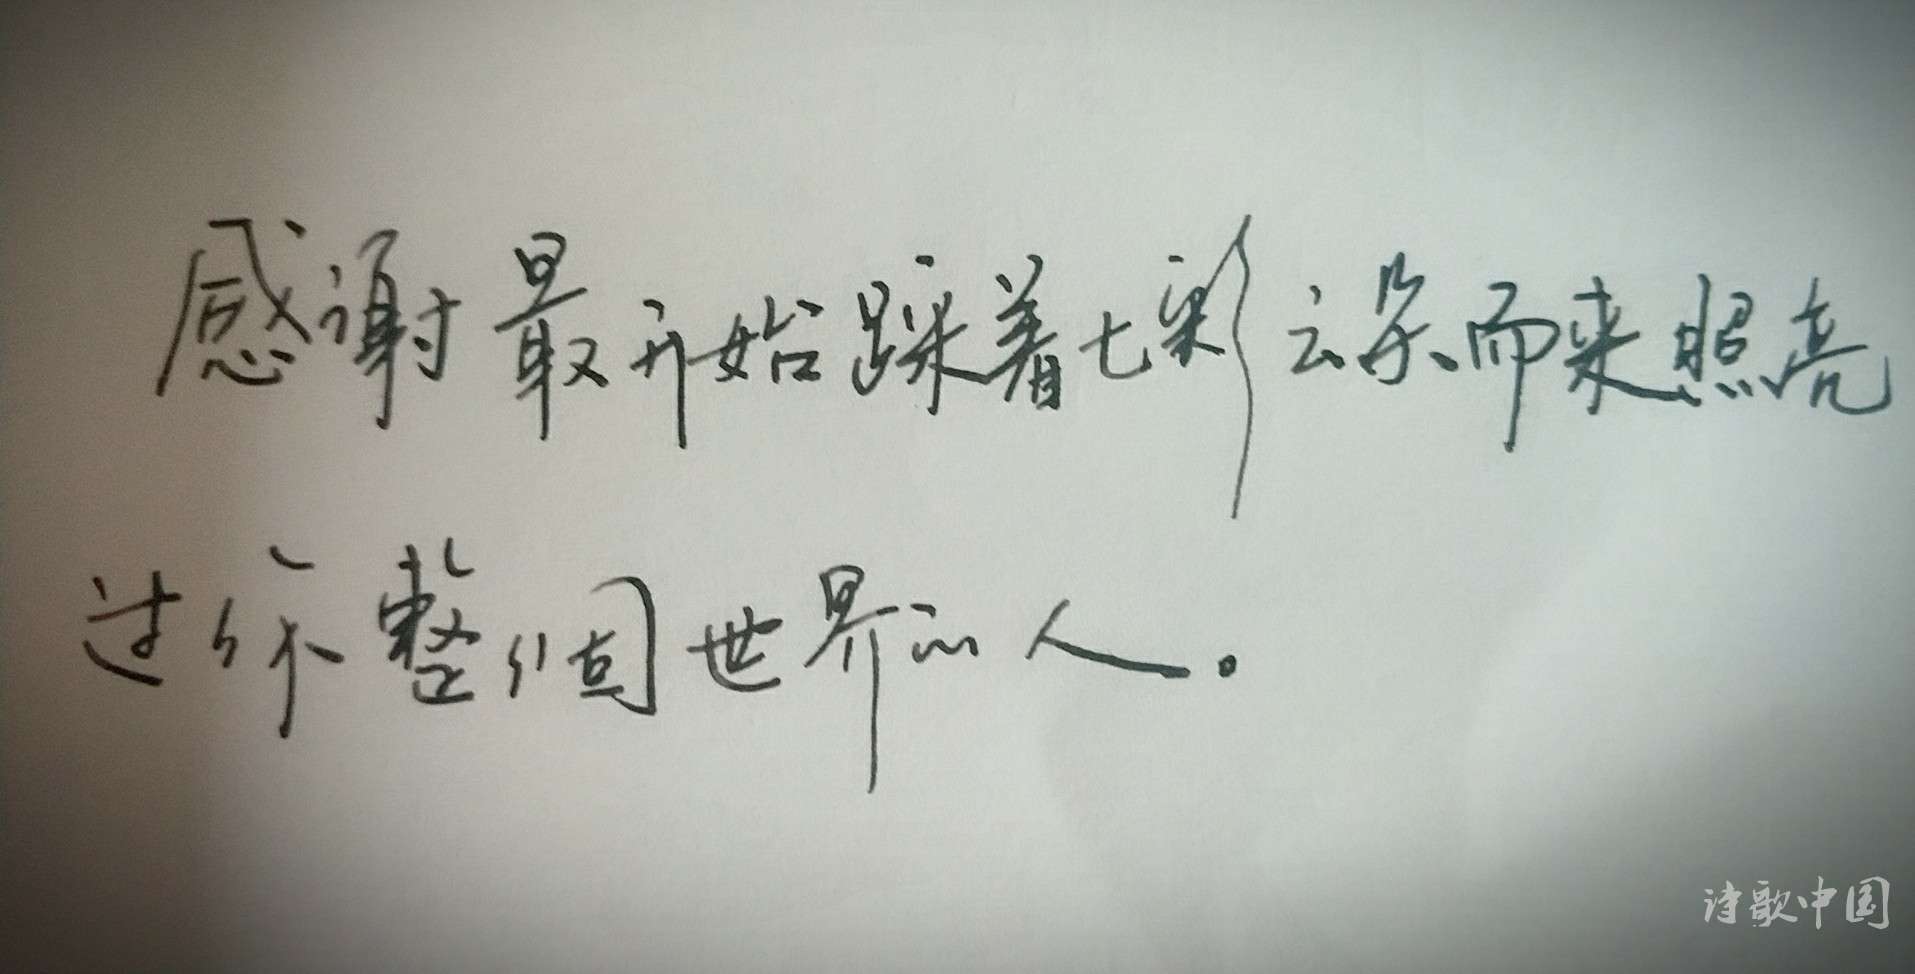 感谢最开始踩着七彩云朵而来照亮
过你整個世界的人。
诗歌中国